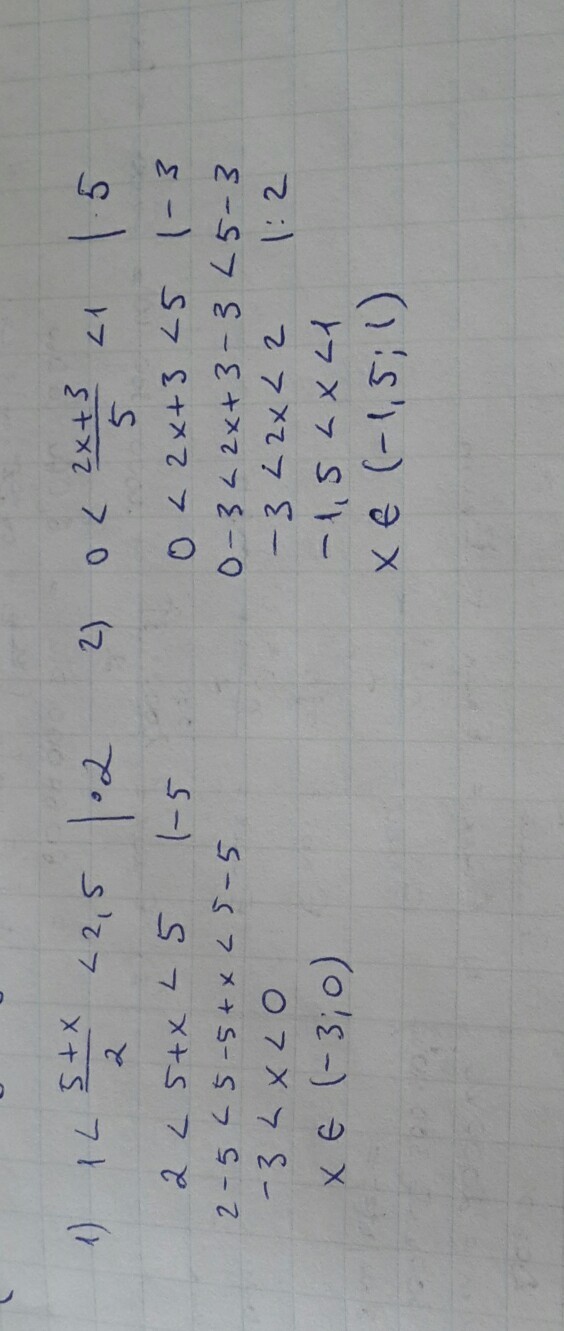 1) 1 < (5+x)/2 < 2,5 | •2
2 < 5+x < 5 |-5
2-5 < 5-5+x < 5-5
-3 < x < 0
x ∈ (-3; 0)
2) 0 < (2x+3)/5 < 1 | · 5
0 < 2x+3 < 5 |-3
0-3 < 2x+3-3 < 5-3
-3 < 2x < 2 | : 2
-1,5 < x < 1
x ∈ (-1,5; 1)